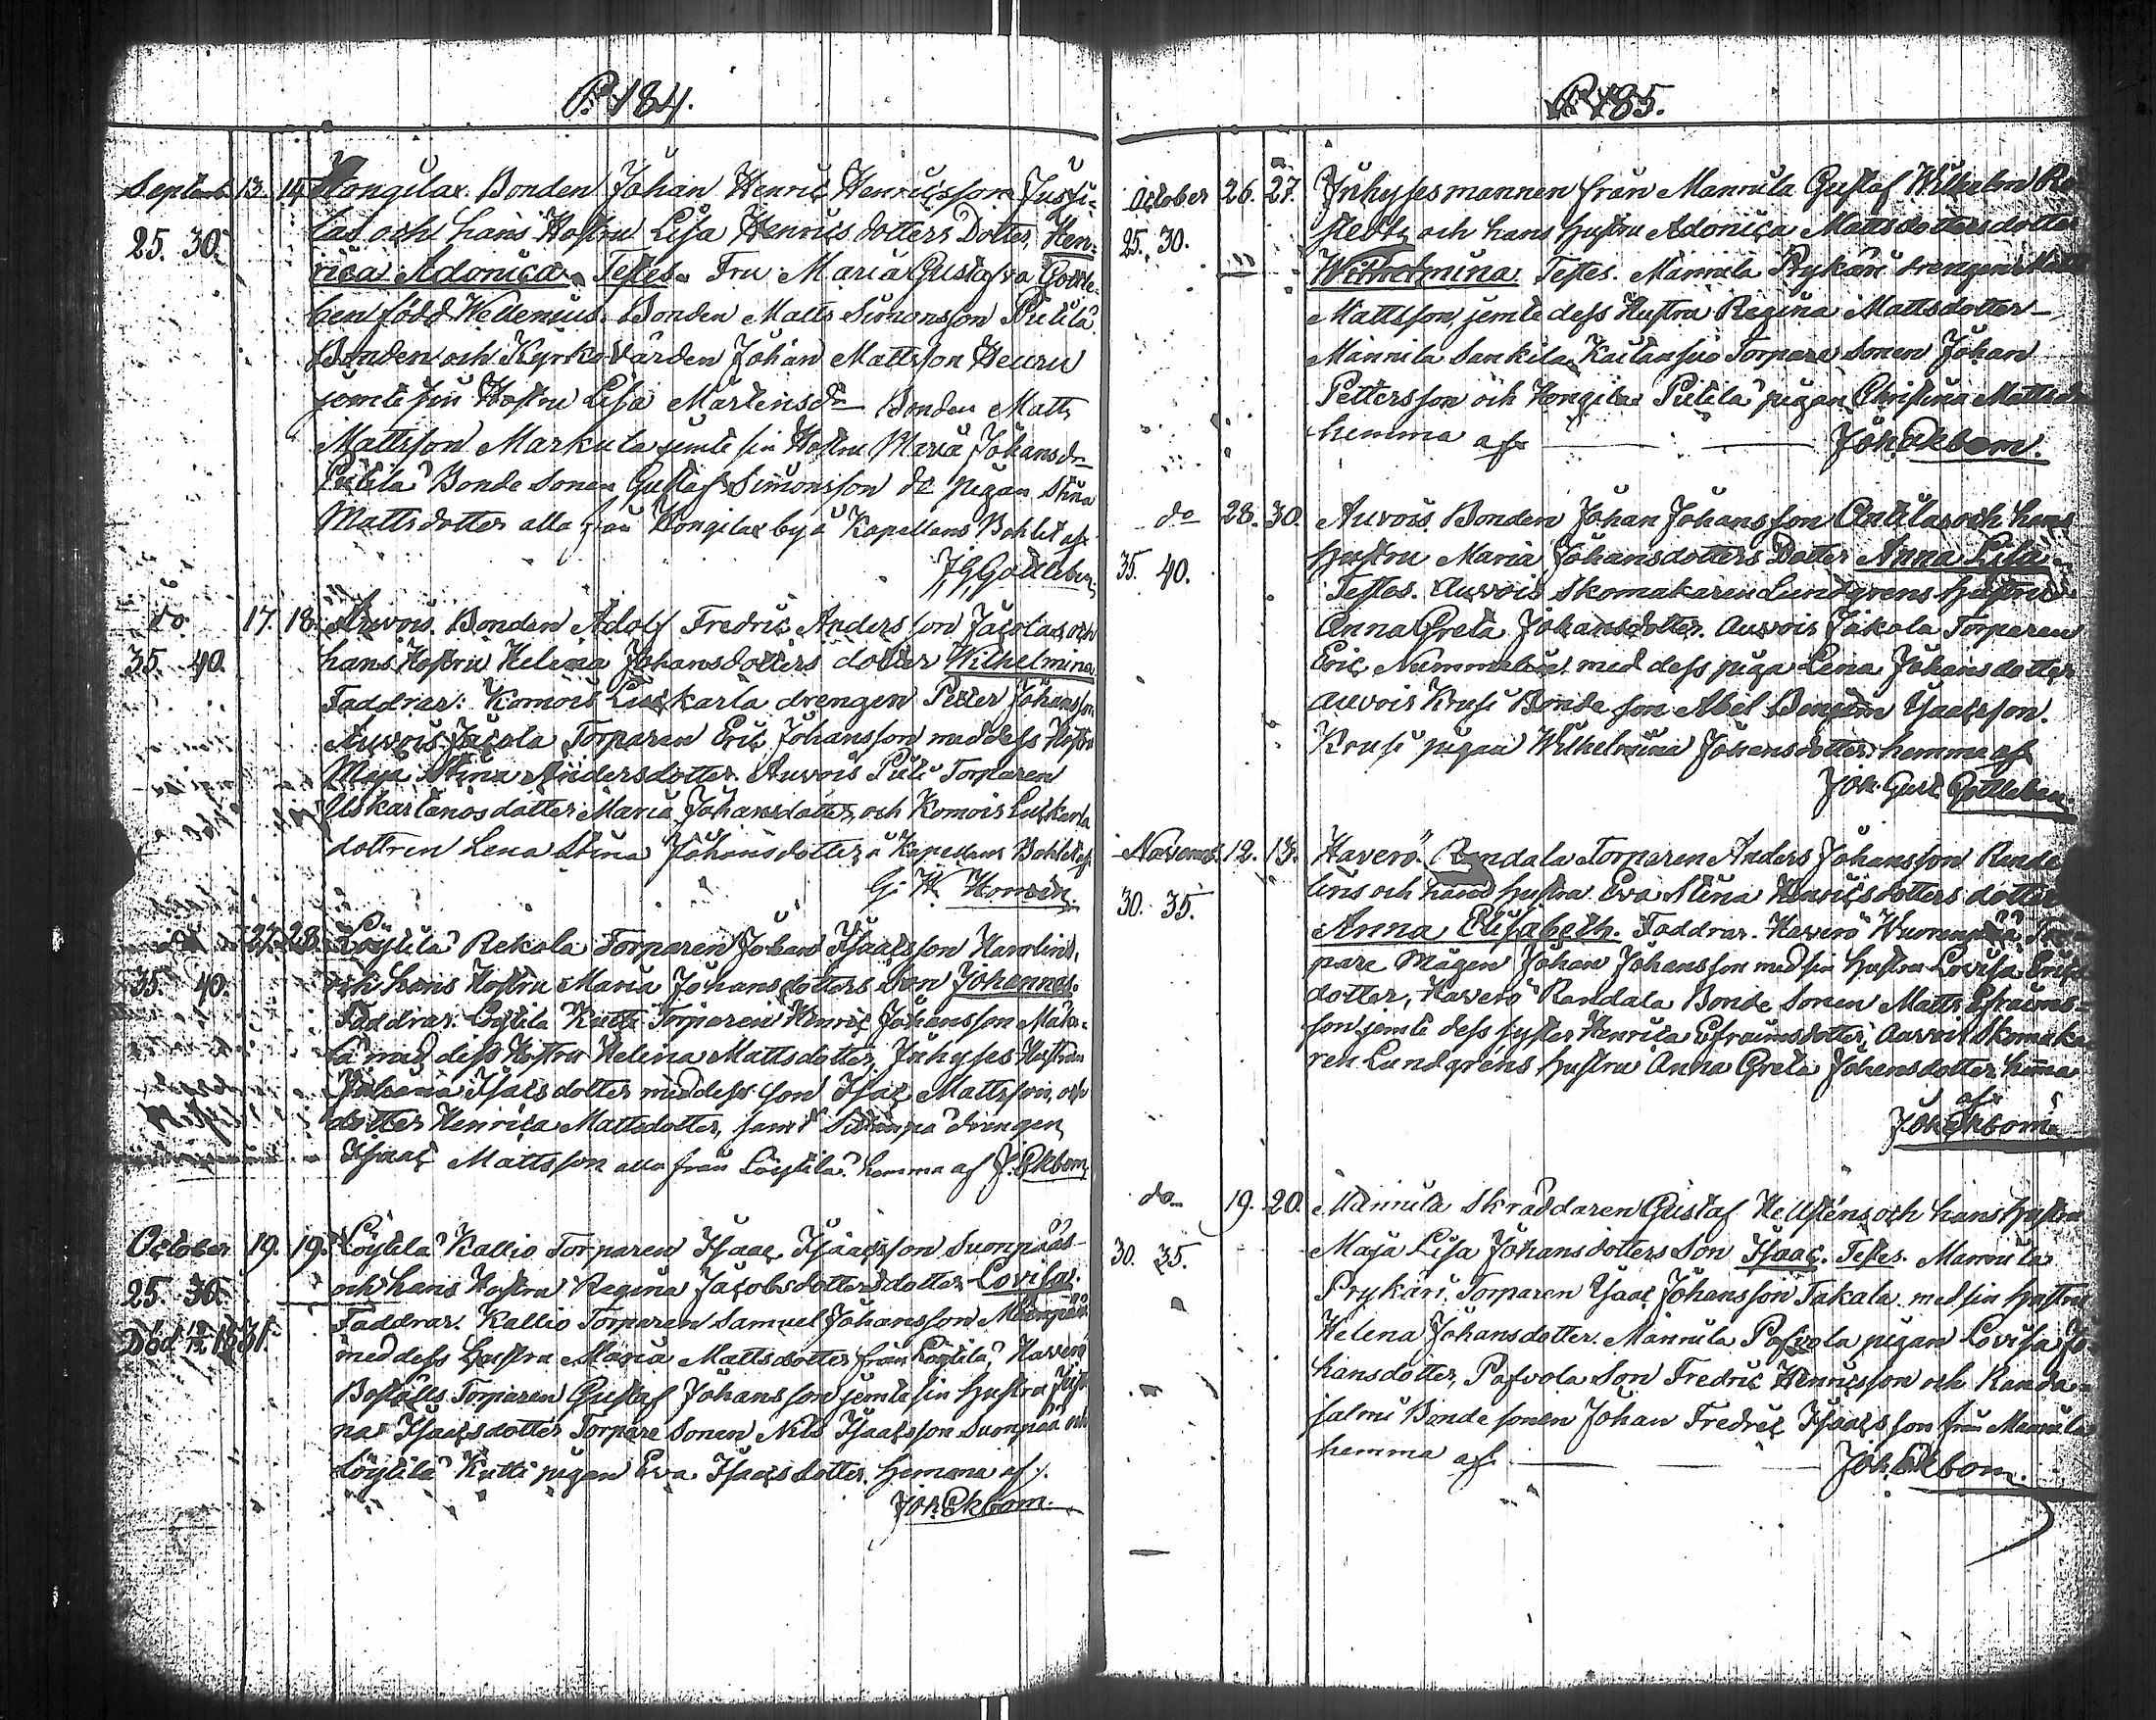 P. 184.
September 13. 14. Hongilax. Bonden Johan Henric Henricsson Jussi-
25. 30. las och hans Hustru Lisa Henrics dotters Dotter, Hen-
rica Adonica. Testes. Fru Maria Gustafva Gottle-
ben född Wellenius. Bonden Matts Simonsson Pietilä
Bonden och Kyrkovärden Johan Mattsson Heuru
jemte sin Hustru Lisa Mårtensdr Bonden Matts
Mattsson Markula jemte sin Hustru Maria Johansdr
Pietilä Bonde Sonen Gustaf Simonsson dc pigan Stina
Mattsdotter alla från Hongilax by å Kapellans Bohlet af
J G Gottleben
do 17. 18. Auvois. Bonden Adolf Fredric Andersson Jacolas och
35. 40. hans Hustru Helena Johansdotters dotter Wilhelmina
Faddrar: Komois Luskarla drengen Petter Johansson
Auvois Jacola Torparen Eric Johansson med dess Hustru
Maja Stina Andersdotter. Auvois Torparen
Uskartanos dotter Maria Johansdotter, och Komois Luskarla
dottren Lena Stina Johansdotter, å Kapellans Bohlet af
G: W. Homén
27. 28. Löytilä Rekola Torparen Johan Isaacsson Harolins,
35. 40. och hans Hustru Maria Johansdotters Son Johannes.
Faddrar. Löytilä Kutti Torparen Henric Johansson
med dess Hustru Helena Mattsdotter, Inhyses Hustrun
Isacsdotter med dess son Isac Mattsson, och
dotter Henrica Mattsdotter, samt drengen
Isaac Mattsson alla från Löytilä. hemma af J. Ekbom
October 19. 19. Löytilä Kallio Torparen Isaac Isaacsson Suonpääs
25. 30. och hans Hustru Regina Jacobsdotters dotter Lovisa.
Död 12/12 1831. Faddrar. Kallio Torparen Samuel Johansson
med dess Hustru Maria Mattsdotter från Löytilä, Haverö
Boställes Torparen Gustaf Johansson jemte sin Hustru
na Isaacsdotter Torpare Sonen Nils Isaacsson Suonpää och
Löytilä Kutti pigan Eva Isaacsdotter. Hemma af
Joh. Ekbom.
P. 185.
October 26. 27. Inhysesmannen från Mannula Gustaf Wilhelm
25. 30. stedts och hans Hustru Adonica Mattsdotters dotter
Wilhelmina. Testes. Mannula Prykäri drengen
Mattsson, jemte dess Hustru Regina Mattsdotter
Mannila Sankila Torpare Sonen Johan
Pettersson och Hongilax Pietilä pigan Christina
hemma af Joh. Ekbom.
do 28. 30. Auvois Bonden Johan Johansson Anttilas och hans
35. 40. Hustru Maria Johansdotters Dotter Anna Lisa
Testes. Auvois Skomakaren Lundgrens Hustru
Anna Greta Johansdotter. Auvois Jakola Torparen
Eric Nummelin med dess piga Lena Johansdotter
Auvois Krusi Bonde son Abel Isaacsson.
Krusi pigan Wilhelmina Johansdotter. hemma af
Joh. Gust. Gottleben.
Novemb. 12. 13. Haverö Randala Torparen Anders Johansson
30. 35. lins och hans Hustru Eva Stina Henricsdotters dotter
Anna Elisabeth. Faddrar. Haverö
pare Mågen Johan Johansson med sin Hustru Lovisa
dotter, Haverö Randala Bonde Sonen Matts Efraims-
son jemte dess syster Henrica Efraimsdotter, Auvois Skomaka
ren Lundgrens Hustru Anna Greta Johansdotter. hemma
af
Joh. Ekbom
do 19. 20. Mannula Skräddaren Gustaf Hellsténs och hans Hustru
30. 35. Maja Lisa Johansdotters Son Isaac. Testes. Mannula
Prykäri. Torparen Isaac Johansson Takala med sin Hustru
Helena Johansdotter. Mannula Pafvola pigan Lovisa Jo
hansdotter, Pafvola Son Fredric Henricsson och Randa-
salmi Bonde sonen Johan Fredric Isaacsson från Mannula
hemma af Joh. Ekbom.